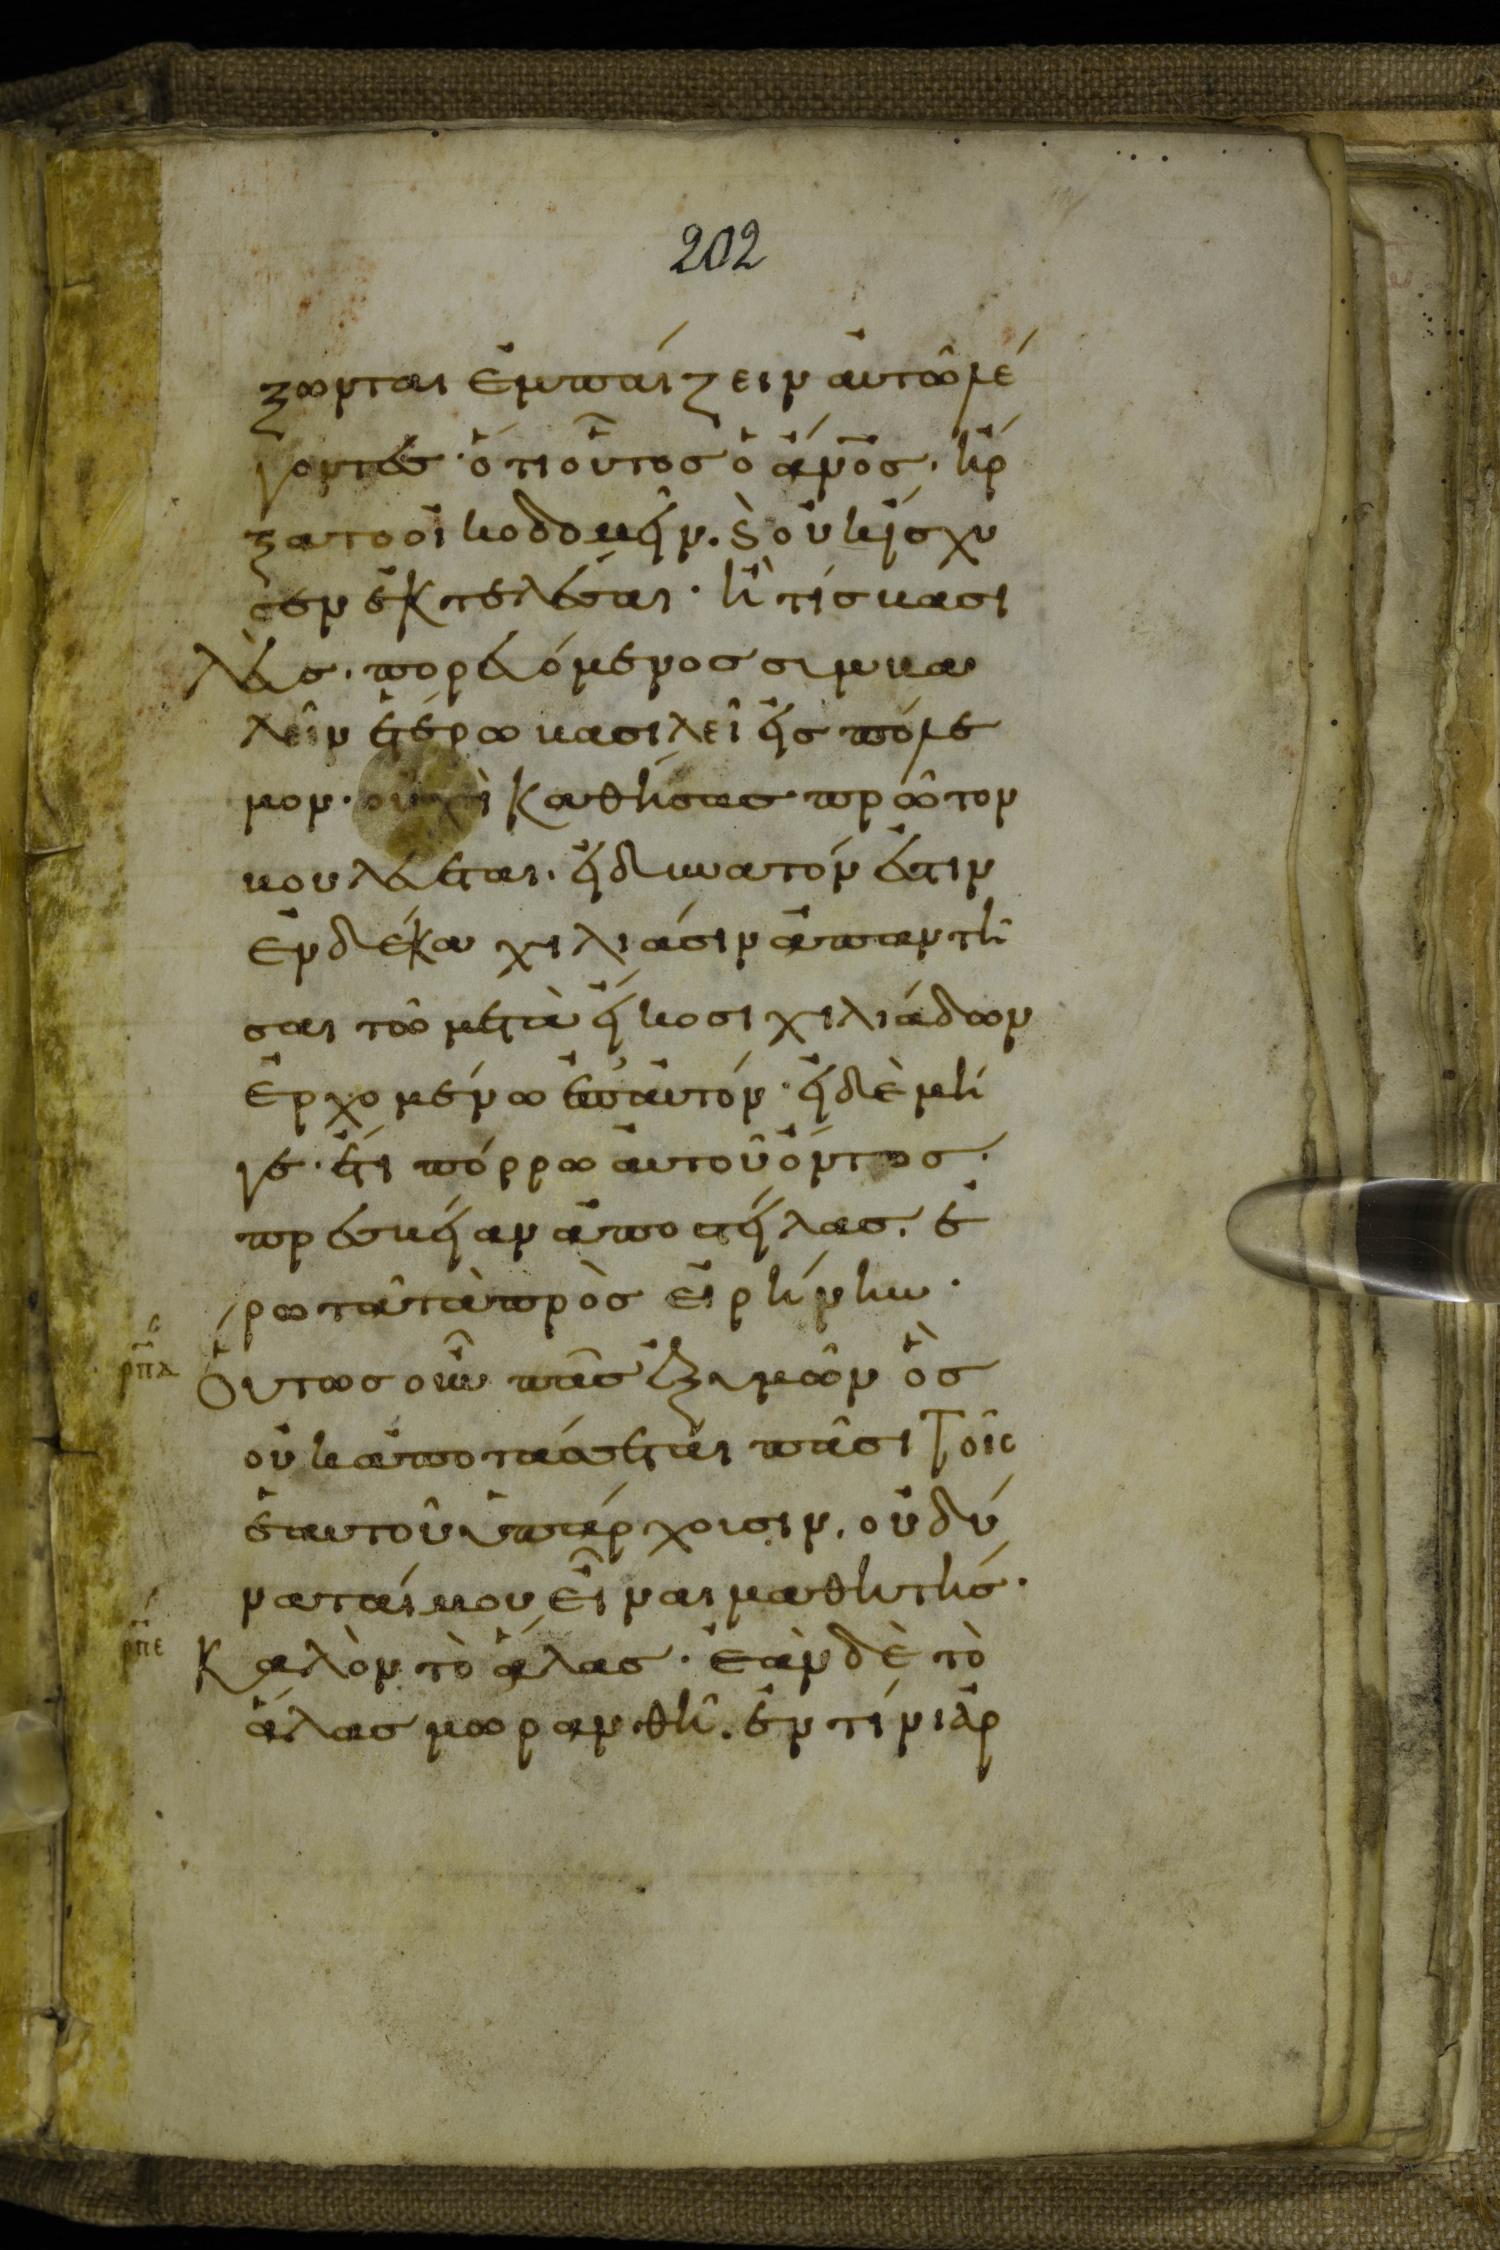 202
ξωνται ἐμπαίζειν αὐτῶ λέ
γοντες· ὅτι οὗτος ὁ ἄν̅ο̅ς̅. ἤρ
ξατο οἰκοδομεῖν. ϗ οὐκ ἴσχυ
σεν ἐκτελέσαι· ἢ τίς βασι
λεὺς. πορευόμενος συμβα
λεῖν ἑτέρω βασιλεῖ εἰς πόλε
μον. οὐχὶ καθίσας πρῶτον
βουλεύεται. εἰ δυνατόν ἐστιν
ἐν δέκα χιλιάσιν ἀπαντῆ
σαι τῶ μετὰ εἴκοσι χιλιάδων
ἐρχομένω ἐπ' αὐτόν· εἰ δὲ μή
γε. ἔτι πόρρω αὐτοῦ ὄντος.
πρεσβείαν ἀποστείλας. ἐ
ρωτᾶ τὰ πρὸς εἰρήνην.
ρπδ Οὕτως οὖν πᾶς ἐξ ὑμῶν ὃς
οὐκ ἀποτάσσεται πᾶσι τοῖς
ἑαυτοῦ ὑπάρχουσιν. οὐ δύ
ναταί μου εἶναι μαθητής.
ρπε Καλὸν τὸ ἅλας. ἐὰν δὲ τὸ
ἅλας μωρανθῆ. ἐν τίνι ἀρ